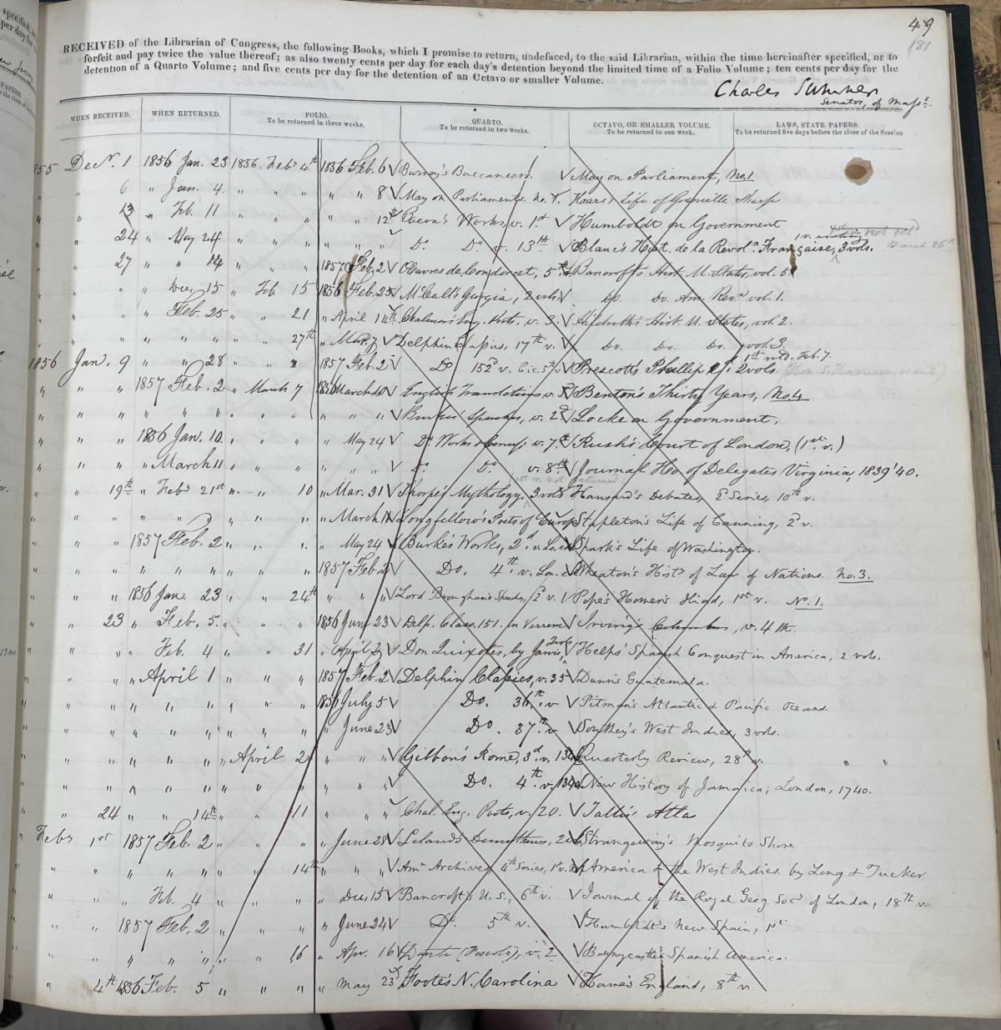 49
181
RECEIVED of the Librarian of Congress, the following Books, which I promise to return, undefaced, to the said Librarian, within the time hereinafter specified, or to
forfeit and pay twice the value thereof; as also twenty cents per day for each day's detention beyond the limited time of a Folio Volume; ten cents per day for the
detention of a Quarto Volume; and five cents per day for the detention of an Octavo or smaller Volume.
Charles Sumner
Senator, of Masss.
WHEN RECEIVED. WHEN RETURNED. FOLIO. QUARTO. OCTAVO, OR SMALLER VOLUME. LAWS, STATE PAPERS.
To be returned in three weeks. To be returned in two weeks. To be returned in one week. To be returned five days before the close of the Session
Decr. 1 1856 Jan. 23 1856 Feb 4th 1856 Feb. 6 √ Burney's Buccaneers. √ May on Parliament, No. 1
6 " Jan. 4. " " " " 8 √ May on Parliament. No. √ Hoare's Life of Granville Sharp
13 " Feb. 11 " " " " 12 Works, v. 1st √ Humboldt on Government
24 " May 24 " " " " Do. Do v. 13th √ Blanc's Hist. de la Revoln. Française, 3 vols.
27 " " 14 " " 1857 Feb. 2 √ Œuvres de Condorcet, 5th √ Bancroft's Hist. U. States, vol. 5.
" " Dec. 15 " Feb 15 1856 Feb. 25 √ McCall's Georgia, 2 vols √ Do. Do. Am. Revn. vol. 1.
" " Feb. 25 " " 21 " April 14th √ Chalmers's Eng. Poets, v. 3. √ Hildreth's Hist. U. States, vol 2.
" " " " " " 27th " Mar. 7 √ Delphin 17th v. √ Do. Do. Do. vol. 3.
1856 Jan. 9 " " 28 " " " 1857 Feb. 2 √ Do 152 v. √ Prescott's Phillip 2d. 2 vols 1st retd. Feb. 7.
" " 1857 Feb. 2 " March 7 1856 March 10 √ English Translations, v. √ Benton's Thirty Years, No. 4
" " " " " " " " " √ Burke's Speeches, v. 2d √ Locke on Government.
" " 1856 Jan. 10. " " " " May 24 √ Do. Works v. 7th √ Rush's Court of London, (1st. v.)
" " " March 11 " " " " " √ Do. Do v. 8th √ Journal Ho of Delegates Virginia, 1839'40.
" 19th " Feby 21st " " 10 " Mar. 31 √ Thorpe's Mythology, 3 vols √ Hansard's Debates, 10th v.
" " " " " " " " March √ Longfellow's Poets of Europe √ Stapleton's Life of Canning, 2d v.
" " 1857 Feb. 2 " " " " May 24 √ Burke's Works, 2d. v. √ Spark's Life of Washington.
" " " " " " " 1857 Feb. 2 √ Do. 4th. v. √ Wheaton's Histy of Law of Nations. No. 3.
" " 1856 Jan. 23 " " 24th " " √ Lord Brougham's v. √ Pope's Homer's Iliad, 1st v. No. 1.
" 23 " Feb. 5. " " " 1856 June 23 √ Delp. Class. 151. √ Irving's Columbus, v. 4th.
" " " Feb. 4 " " 31 " April √ Don Quixote, by Jarvis, √ Helps' Spanish Conquest in America, 2 vols.
" " " April 1 " " " 1857 Feb. 2 √ Delphin Classics, v. 35 √ Dunn's Guatemala.
" " " " " " " 1856 July 5 √ Do. 36th. v √ Pitman's Atlantic & Pacific Oceans.
" " " " " " " " June 23 √ Do. 37th. v √ Southey's West Indies, 3 vols.
" " " " " April 2 " " " √ Gibbon's Rome, 3d. v. √ Quarterly Review, 28th v.
" " " " " " " " " " √ Do. 4th. v. √ New History of Jamaica; London, 1740.
" 24 " 14th " " 11 " " " √ Chal. Eng. Poets, v. 20. √ Tallis's Atla
Feby 1st 1857 Feb. 2 " " " " June 25 √ Leland's Demosthenes, √ Strangeway's Mosquito Shore
" " " " " " 14th " " " √ Amn Archives, 4th Series, √ America & the West Indies. by Long & Tucker
" " " Feb. 4 " " " " Dec. 15 √ Bancroft's U. S., 6th v. √ Journal of the Royal Geog. Socy of London, 18th v.
" " 1857 Feb. 2 " " " " June 24 √ Do. 5th v. √ Humboldt's New Spain, 1st
" " " " " " 16 " Apr. 16 √ v. 2 √ Bonnycastle's Spanish America.
" 4th 1856 Feb. 5 " " " " May 23 √ Foote's N. Carolina √ Hume's England, 8th v